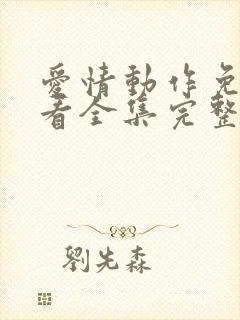 愛情動作免
看全集完整
劉先森